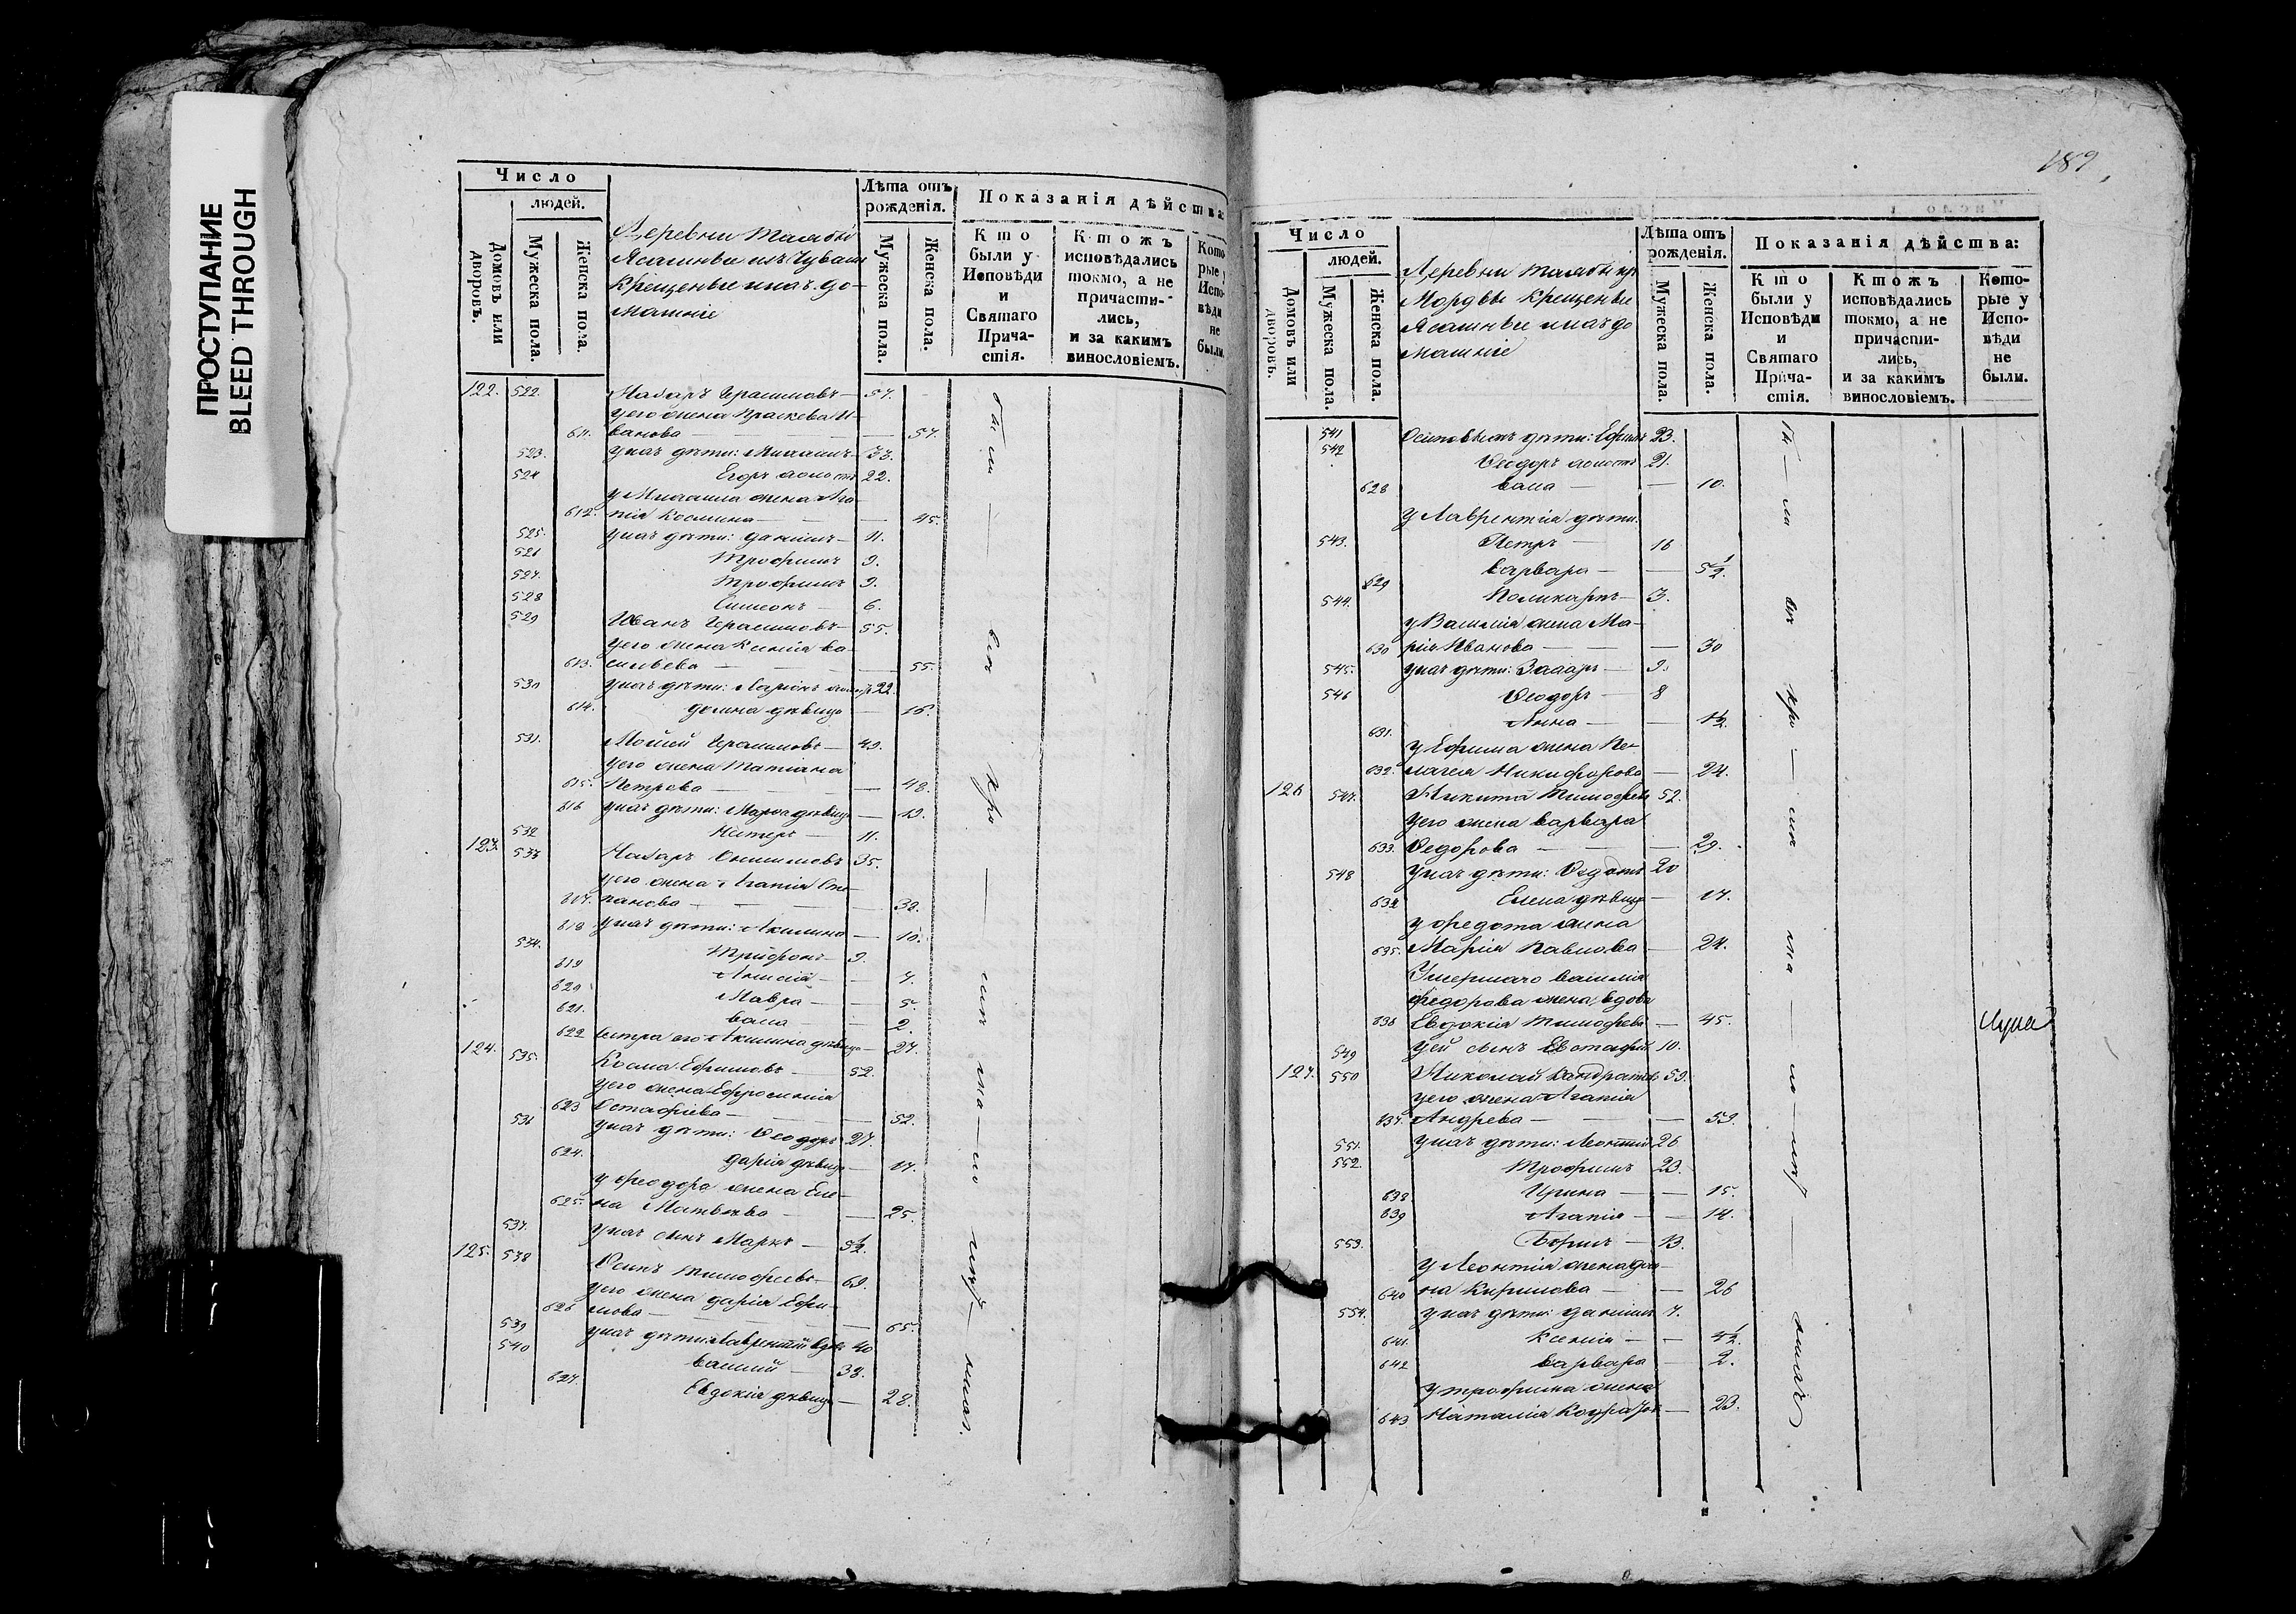 ПРОСТУПАНИЕ
BLEED THROUGH
Число
людей.
Домовъ или дворовъ.
Мужеска пола.
Женска пола.
Лѣта отъ рожденія.
Мужеска пола.
Женска пола.
Показанія дѣйства:
Кто были у Исповѣди и Святаго Причастія.
Ктожъ исповѣдались токмо, а не причастились, и за какимъ винословіемъ.
Которые у Исповѣди не были.
Деревни
Ясашные изъ Чувашъ
Крещеные и ихъ до-
машніе
122. 522. Назаръ Герасимовъ — 57.
у его жена Праскева И-
611. ванова — 57.
523. у нихъ дѣти: Михаилъ — 37.
524 Егоръ холостъ 22.
у Михаила жена Ага-
612. пія Космина — 45.
525. у нихъ дѣти: Данилъ — 11.
526 Трофимъ 9.
527. Трофимъ 9.
528 Симеонъ 6.
529 Иванъ Герасимовъ — 55.
у его жена Ксенія Ва-
613. сильева — 55.
530 у нихъ дѣти: Ларіонъ 22.
614. дѣвица — 15.
531. Мойсей Герасимовъ — 49.
у его жена Татіана
615. Петрова — 48.
616 у нихъ дѣти: Марѳа дѣвица — 19.
532 Нестеръ — 11.
123. 533 Назаръ Онисимовъ 35.
у его жена Агапія Сте-
617. панова — 38.
618 у нихъ дѣти: Акилина — 10.
534. Трифонъ — 9.
619 Анисія — 7.
620 Мавра — 5.
621. Васа — 2.
622 Сестра его Акилина дѣвица — 27.
124. 535. Косма Ефимовъ — 52.
у его жена Ефросинія
623 Остафіева — 52.
536 у нихъ дѣти: Ѳеодоръ 27.
624. Дарія дѣвица — 17.
у Ѳеодора жена Еле-
625. на Матвѣева — 25.
537. у нихъ сынъ Маркъ — 5½.
125. 538 Осипъ Тимофеевъ — 69.
у его жена Дарія Ефи-
626 мова — 65.
539 у нихъ дѣти: Лаврентій вдовъ 40
540 Василій — 38.
627. Евдокія дѣвица — 28.
189
Число
людей.
Домовъ или дворовъ.
Мужеска пола.
Женска пола.
Лѣта отъ рожденія.
Мужеска пола.
Женска пола.
Показанія дѣйства:
Кто были у Исповѣди и Святаго Причастія.
Ктожъ исповѣдались токмо, а не причастились, и за какимъ винословіемъ.
Которые у Исповѣди не были.
Деревни
Мордвы Крещеные
Ясашные и ихъ до
машніе
541 Осиповыхъ дѣти: Ефимъ 23.
542 Ѳеодоръ холостъ 21.
628 Васа — 10.
у Лаврентія дѣти:
543. Петръ — 16
629 Варвара — 5½.
544. Поликарпъ — 3.
у Василія жена Ма-
630 рія Иванова — 30
545. у нихъ дѣти: Захаръ — 9.
546 Ѳеодоръ — 8
631. Анна — 1½.
у Ефима жена Пе-
632. лагея Никифорова — 24.
126 547. Никита Тимофеевъ 52.
у его жена Варвара
633. Ѳедорова — 29.
548 у нихъ дѣти: Ѳедотъ 20
634 Елена дѣвица — 17.
у Федота жена
635. Марія Павлова — 24.
Умершаго Василія
Федорова жена вдова
636 Евдокія Тимофеева — 45.
549 у ей сынъ Евстафій 10.
127. 550 Николай Кандратьевъ 59.
у его жена Агапія
637. Андрева — 59.
551. у нихъ дѣти: Леонтій 26
552. Трофимъ 23.
638. Ирина — 15.
639 Агапія — 14.
553. Ефимъ — 13.
у Леонтія жена
640 на Кирилова — 26
554. у нихъ дѣти: Данилъ 7.
641. Ксенія — 4½.
642 Варвара — 2.
у Трофима жена
643 Наталія — 23.